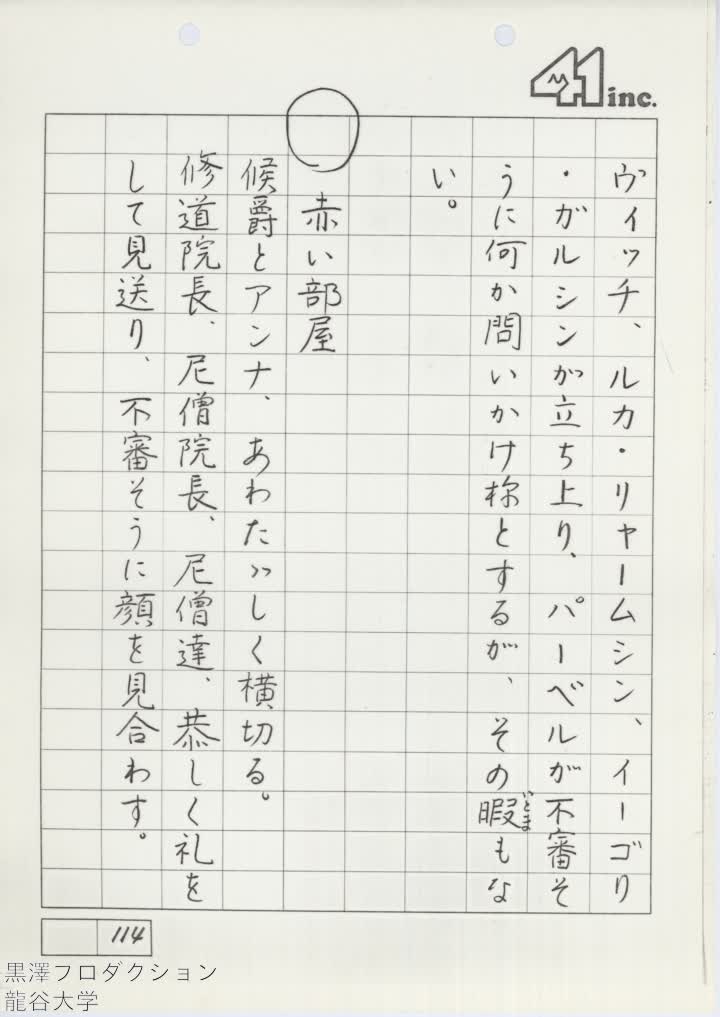 41 inc.
ヴィッチ、ルカ・リャームシン、イーゴリ
・ガルシンが立ち上り、パーベルが不審そ
うに何か問いかけ様とするが、その暇もな
いとま
い。
○
赤い部屋
候爵とアンナ、あわたゞしく横切る。
修道院長、尼僧院長、尼僧達、恭しく礼を
して見送り、不審そうに顔を見合わす。
114
黒澤プロダクション
龍谷大学